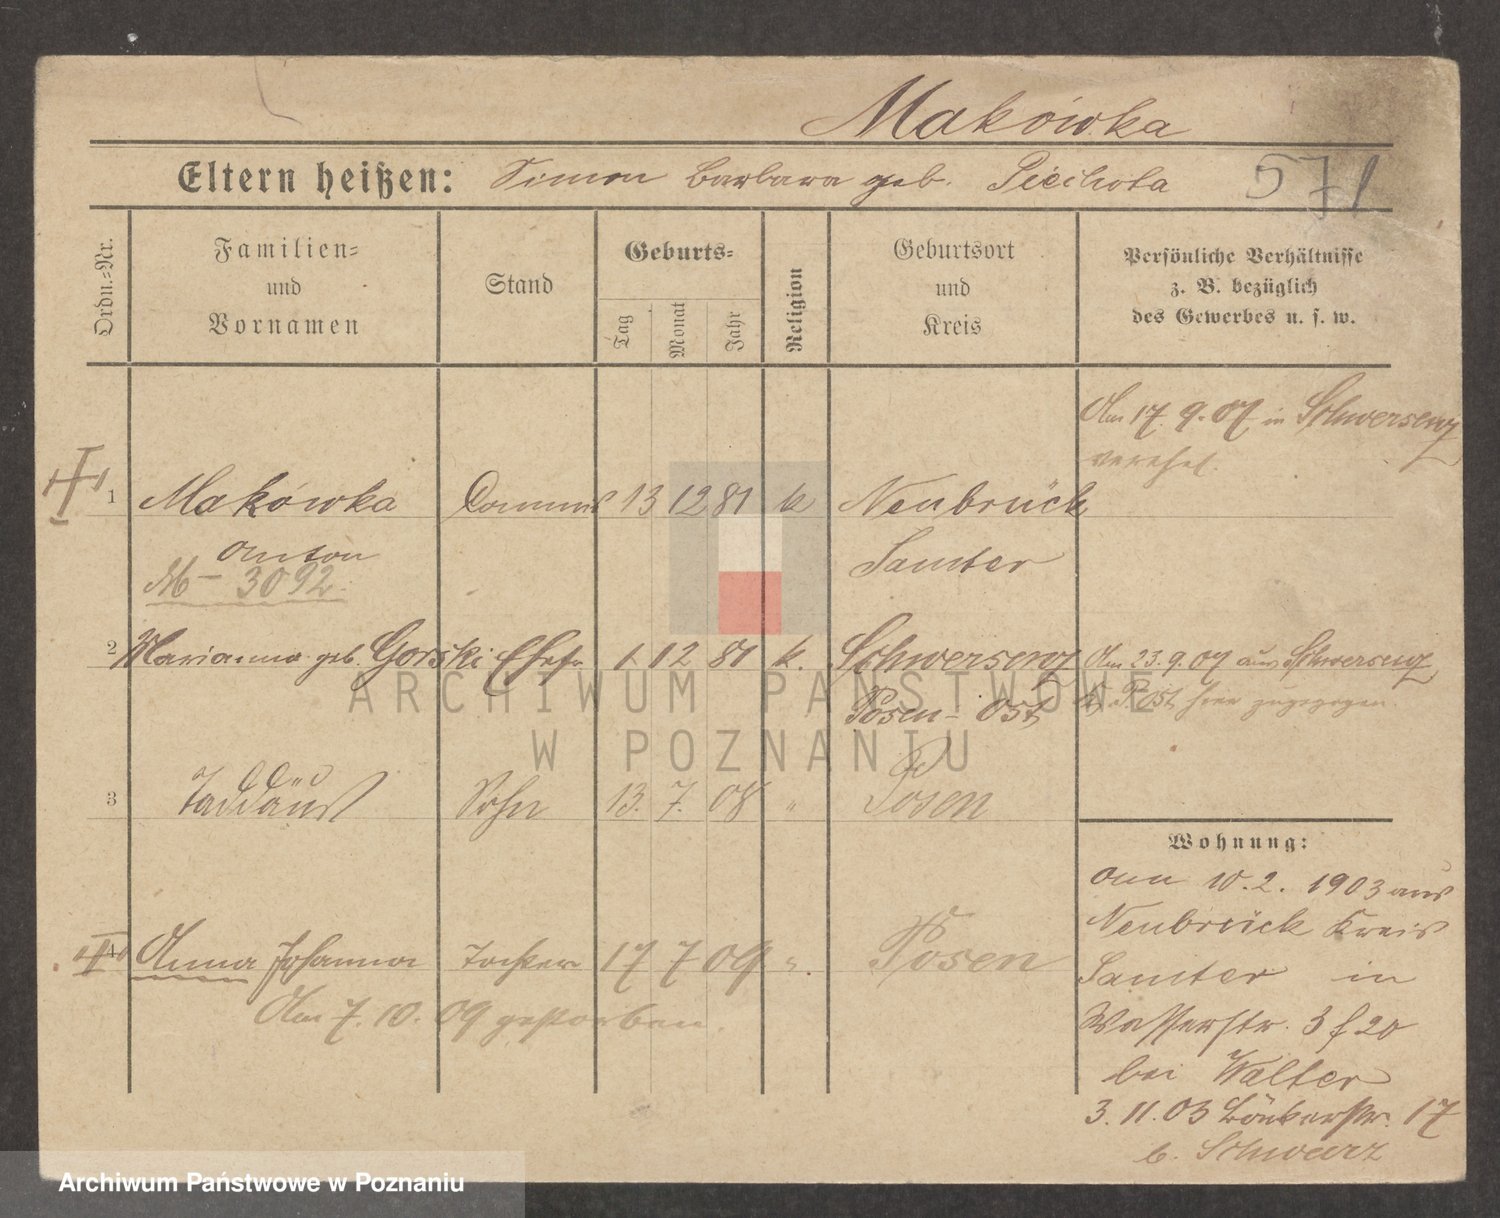 Makówka
Eltern heißen: Simon Barbara geb. Piechota
571
Ordn.-Nr.
Familien-
und
Vornamen
Stand
Geburts-
Tag
Monat
Jahr
Religion
Geburtsort
und
Kreis
Persönliche Verhältnisse
z. B. bezüglich
des Gewerbes u. s. w.
Am 17. 9. 07 in Schwersenz
verehel.
1 Makówka 13 12 81 k Neubrück
Anton Samter
M – 3092.
2 Marianna geb. Gorski Ehefr 1 12 81 k. Schwersenz Am 23. 9. 07 aus Schwersenz
Posen - Ost P. Ost hier zugezogen
3 Taddäus Sohn 13. 7. 08 " Posen
Wohnung:
am 10. 2. 1903 aus
Neubrück Kreis
4 Anna Johanna Tochter 17 7 09 " Posen
Samter in
Am 7. 10. 09 gestorben.
Wasserstr. 3 f 20
bei Walter
3. 11. 03 Bäckerstr. 17
b. Schwarz
ARCHIWUM PAŃSTWOWE
W POZNANIU
Archiwum Państwowe w Poznaniu